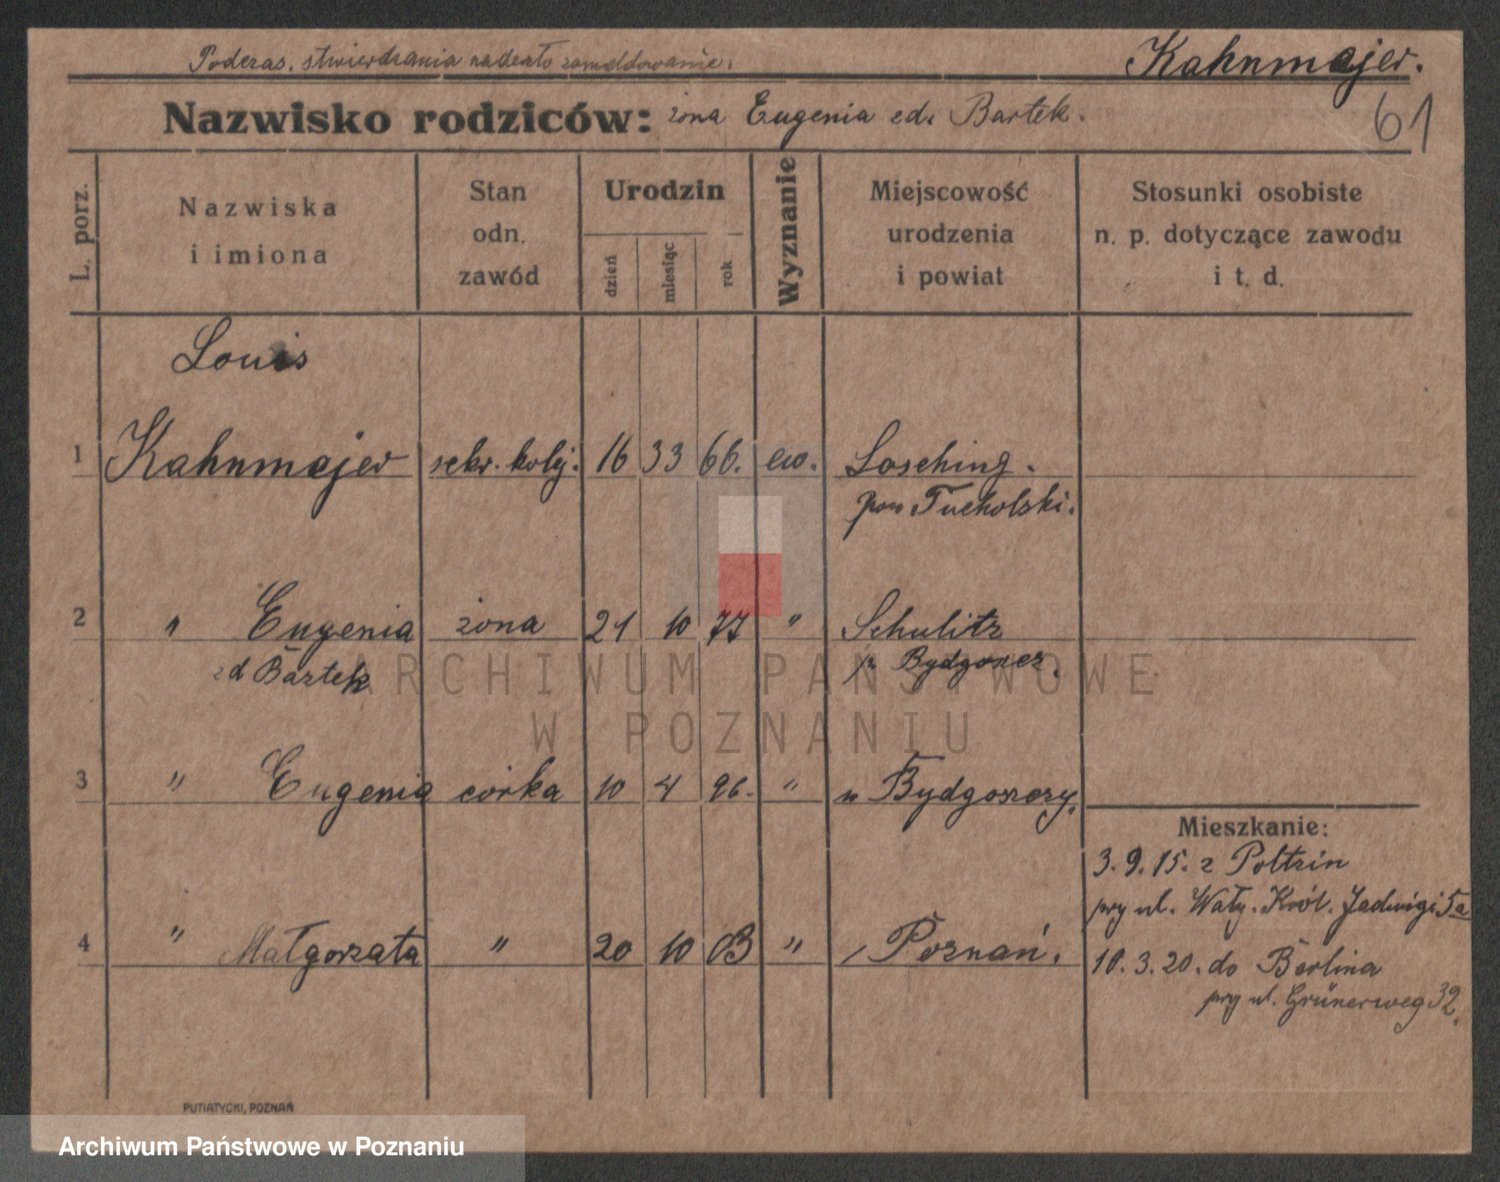 Podczas. stwierdzania nadeszło zameldowanie.
Kahnmajer.
Nazwisko rodziców: żona Eugenia zd. Bartek.
61
L. porz.
Nazwiska
i imiona
Stan
odn.
zawód
Urodzin
dzień
miesiąc
rok
Wyznanie
Miejscowość
urodzenia
i powiat
Stosunki osobiste
n. p. dotyczące zawodu
i t. d.
Louis
1 Kahnmajer sekr. kolej. 16 33 66. ew. Losching.
pow Tucholski.
2 " Eugenia żona 21 10 77 " Schulitz
zd Bartek p. Bydgoszcz.
ARCHIWUM PAŃSTWOWE
W POZNANIU
3 " Eugenia córka 10 4 96. " w Bydgoszczy.
Mieszkanie:
3. 9. 15. z Poltzin
przy ul. Wały. Król. Jadwigi 5a
4 " Małgorzata " 20 10 03 " Poznań.
10. 3. 20. do Berlina
przy ul. Grünerweg 32.
PUTIATYCKI, POZNAŃ
Archiwum Państwowe w Poznaniu